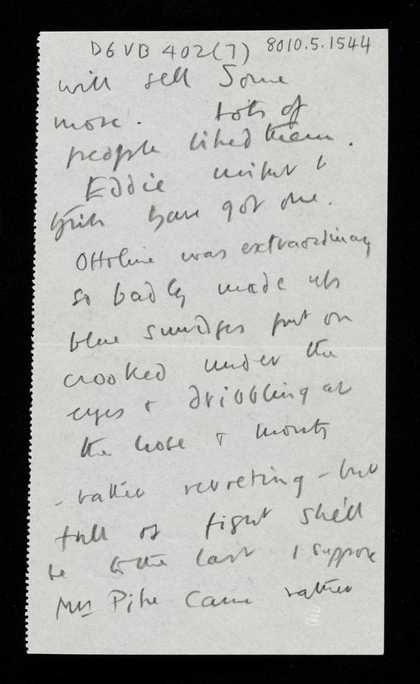 DGVB 402(7) 8010.5.1544
will sell Some
more. Lots of
people liked them.
Eddie
have got one.
Ottoline was extraordinary
so badly made up
blue smudges put on
crooked under the
eyes & dribbling at
the nose & mouth
- rather revolting - but
full of fight she'll
be to the last I suppose
Mrs Pike came rather